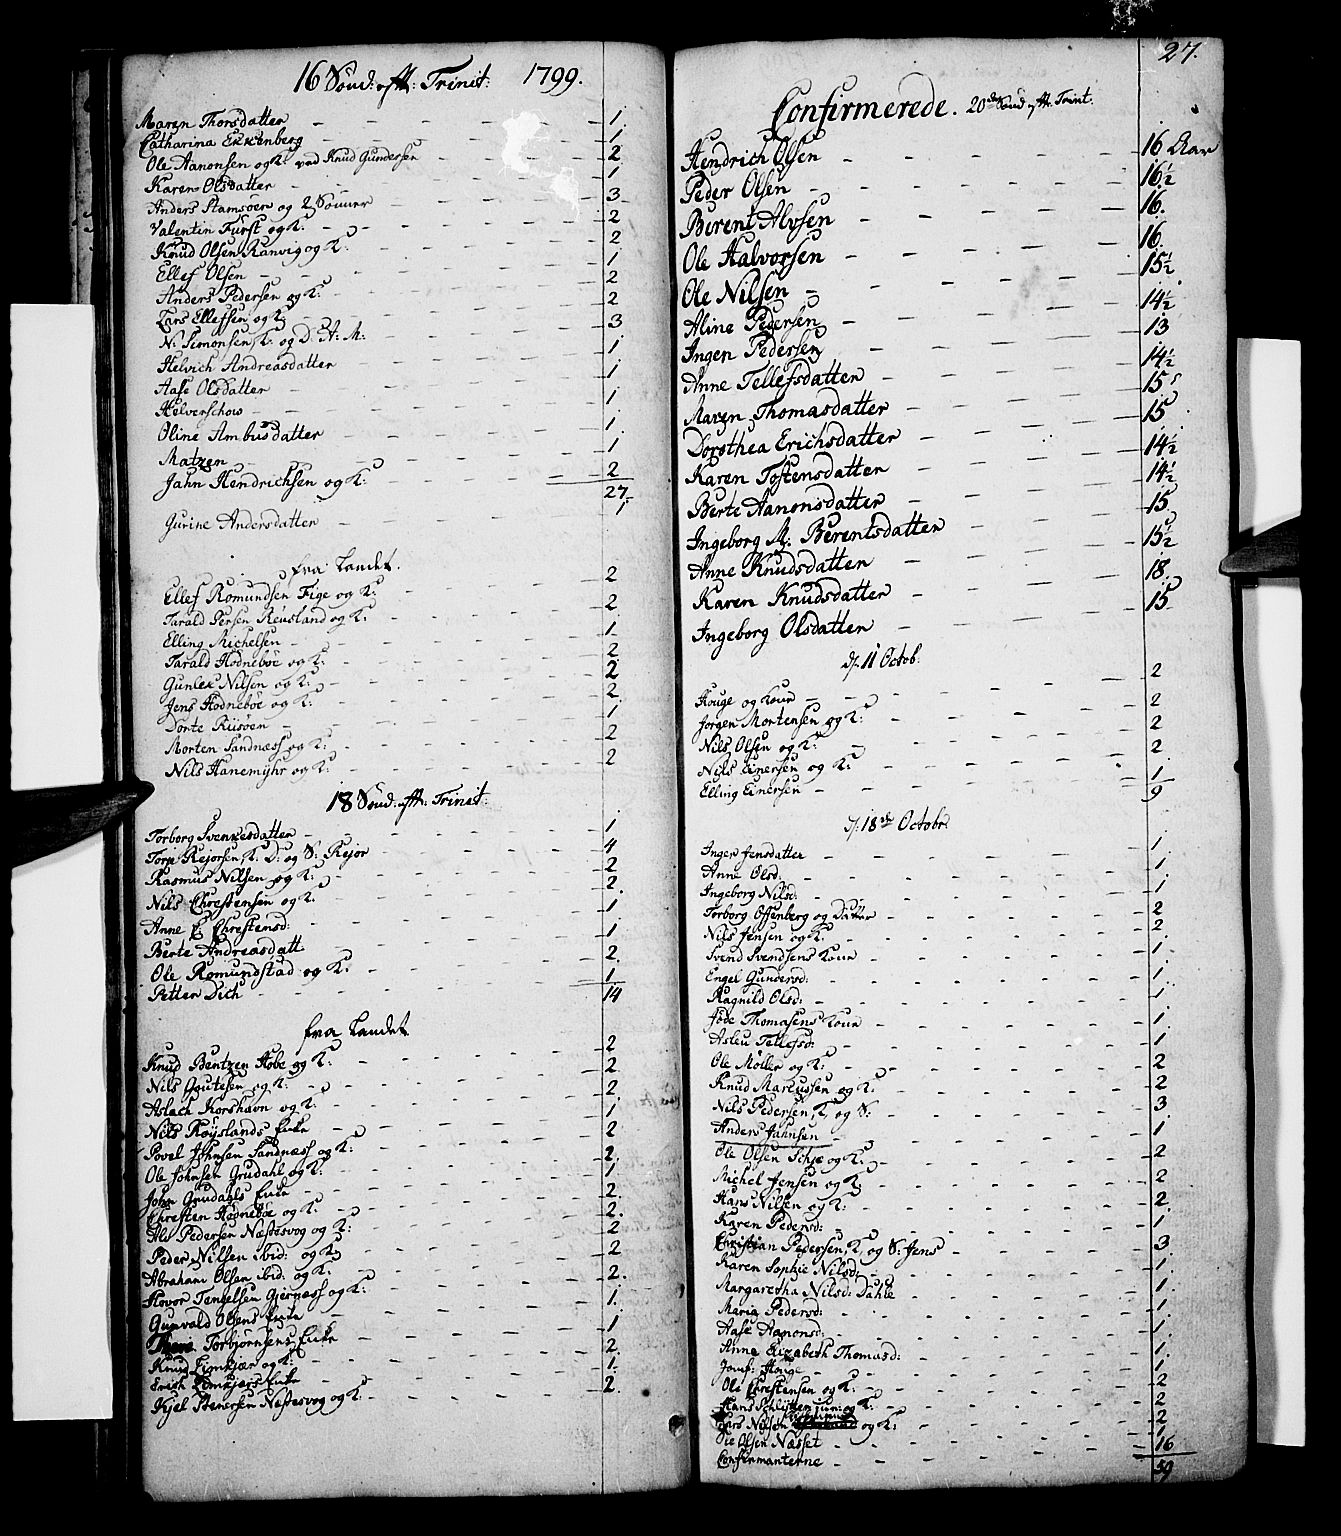 16 Sönd: efth: Trinit: 1799.
Maren Thorsdatter - - 1.
Catharina Eckenberg - - 1.
Ole Aanonsen og K: ved Knud Gundersen - 2.
Karen Olsdatter - - 1.
Anders Stamsöen og 2 Sönner - - 3
Valentin Fürst og K: - - 2
Knud Olsen Ranvig og K: - - 2
Ellef Olsen - - 1
Anders Pedersen og K: - - 2
Lars Ellefsen og K: - - 2
N: Simonsen, K: og D: A: M: - - 3
Helvich Andreasdatter - - 1.
Aase Olsdatter - - 1
Helverschow - - 1
Oline Ambusdatter - - 1.
Matzen - - 1
Jahn Hendrichsen og K: - - 2
27.
Gurine Andersdatter - - 1
fra Landet.
Ellef Romundsen Fige og K: - - 2
Tarald Persen Reusland og K: - - 2
Elling Michelsen - - 1
Tarald Hodneböe og K: - - 2.
Gunlex Nilsen og K: - - 2
Jens Hodneböe og K: - - 2
Dorte Riisöen - - 1.
Morten Sandness og K: - - 2
Nils Hanemyhr og K: - - 2
18 Sönd: efth: Trinit:
Torborg Svenkesdatter - - 1
Torp Rejorsen, K: D: og S: Rejor - - 4
Rasmus Nilsen og K: - - 2
Nils Chrestensen og K: - - 2.
Anne E: Chrestensd: - - 1
Berte Andreasdatt - - 1.
Ole Romundstad og K: - - 2.
Petter Dich - - 1.
14
fra Landet
Knud Bentzen Hobe og K: - - 2
Nils Gautesen og K: - - 2.
Aslach Korshavn og K: - - 2
Nils Röyslands Enke - - 1.
Povel Johnsen Sandness og K: - - 2
Ole Johnsen Grudahl og K: - - 2.
John Grudahls Enke - - 1
Chresten Hodneböe og K: - - 2.
Ale Pedersen Næstesvog og K: - - 2.
Peder Nilsen ibid: og K: - - 2
Abraham Olsen ibid: og K: - - 2
Hovor Tengelsen Gjerness og K: - - 2.
Gunvald Olsens Enke - - 1.
Torbjörnsens Enke - - 1
Knud Limkjær og K: - - 2.
Erich Limkjærs Enke - - 1.
Kjel Stenersen Næstesvog og K: - - 2.
27.
Confirmerede. 20de Sönd: efth: Trint.
Hendrich Olsen - - 16 Aar
Peder Olsen - - 16½
Berent Alvsen - - 16.
Ole Halvorsen - - 16.
Ole Nilsen - - 15½
Aline Pedersen - - 14½
Ingen Pedersen - - 13
Anne Tellefsdatter - - 14½
Maren Thomasdatter - - 15
Dorothea Erichsdatter - - 15
Karen Tostensdatter - - 14½
Berte Aanonsdatter - - 14½
Ingeborg M: Berentsdatter - - 15
Anne Knudsdatter - - 15½
Karen Knudsdatter - - 18
Ingeborg Olsdatter - - 15
d: 11 Octob:
Houge og Kone - - 2
Jörgen Mortensen og K: - - 2
Nils Olsen og K: - - 2
Nils Einersen og K: - - 2
Elling Einersen - - 1
9
d: 18de Octobr:
Inger Jensdatter - - 1.
Anne Olsd: - - 1.
Ingeborg Nilsd: - - 1
Torborg Offenberg og Datter - - 2
Nils Jensen og K: - - 2
Svend Svendsens Kone - - 1.
Engel Gundersd: - - 1.
Ragnild Olsd: - - 1.
Jöde Thomasens Kone - - 1.
Asleu Tellefsd: - - 1
Ole Möller og K: - - 2
Knud Marcussen og K: - - 2
Nils Pedersen, K: og S: - - 3
Anders Jahnsen - - 1
Ole Olsen Schje og K: - - 2
Michel Jensen og K: - - 2
Hans Nilsen og K: - - 2.
Karen Pedersd: - - 1
Christian Pedersen, K: og S: Jens - - 3
Karen Sophie Nilsd: - - 1.
Margaretha Nilsd: Dahle - - 1.
Maria Pedersd: - - 1.
Aase Aanonsd: - - 1.
Anne Elizabeth Thomasd: - - 1.
Jomf: Houge - - 1
Ole Chrestensen og K: - - 2
Hans Schlytter jun: og K: - - 2
Lars Nilsen og K: - - 2
Ole Olsen Næsset - - 1
Confirmanterne - - 16
59